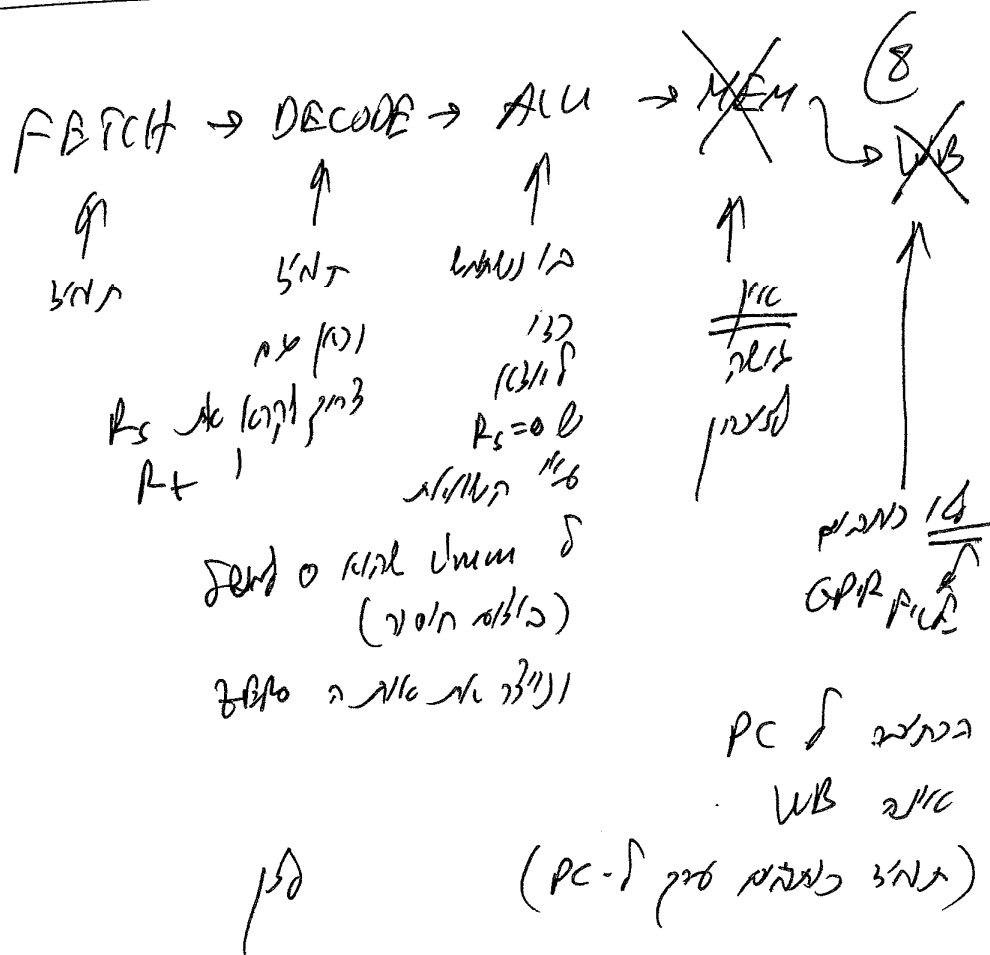 8
FETCH → DECODE → ALU → MEM → WB
תמיד
תמיד
וכאן גם
צריך לקרוא את Rs
ו Rt
בו נשתמש
כדי
לוודא
ש Rs=0
ע"י השוואת
ל שהוא 0
(ביצוע חיסור)
ונייצר את אות ה ZERO
אין
גישה
לזיכרון
לא כותבים
GPR
הכתיבה ל PC
אינה WB
(תמיד כותבים ערך ל-PC)
לכן